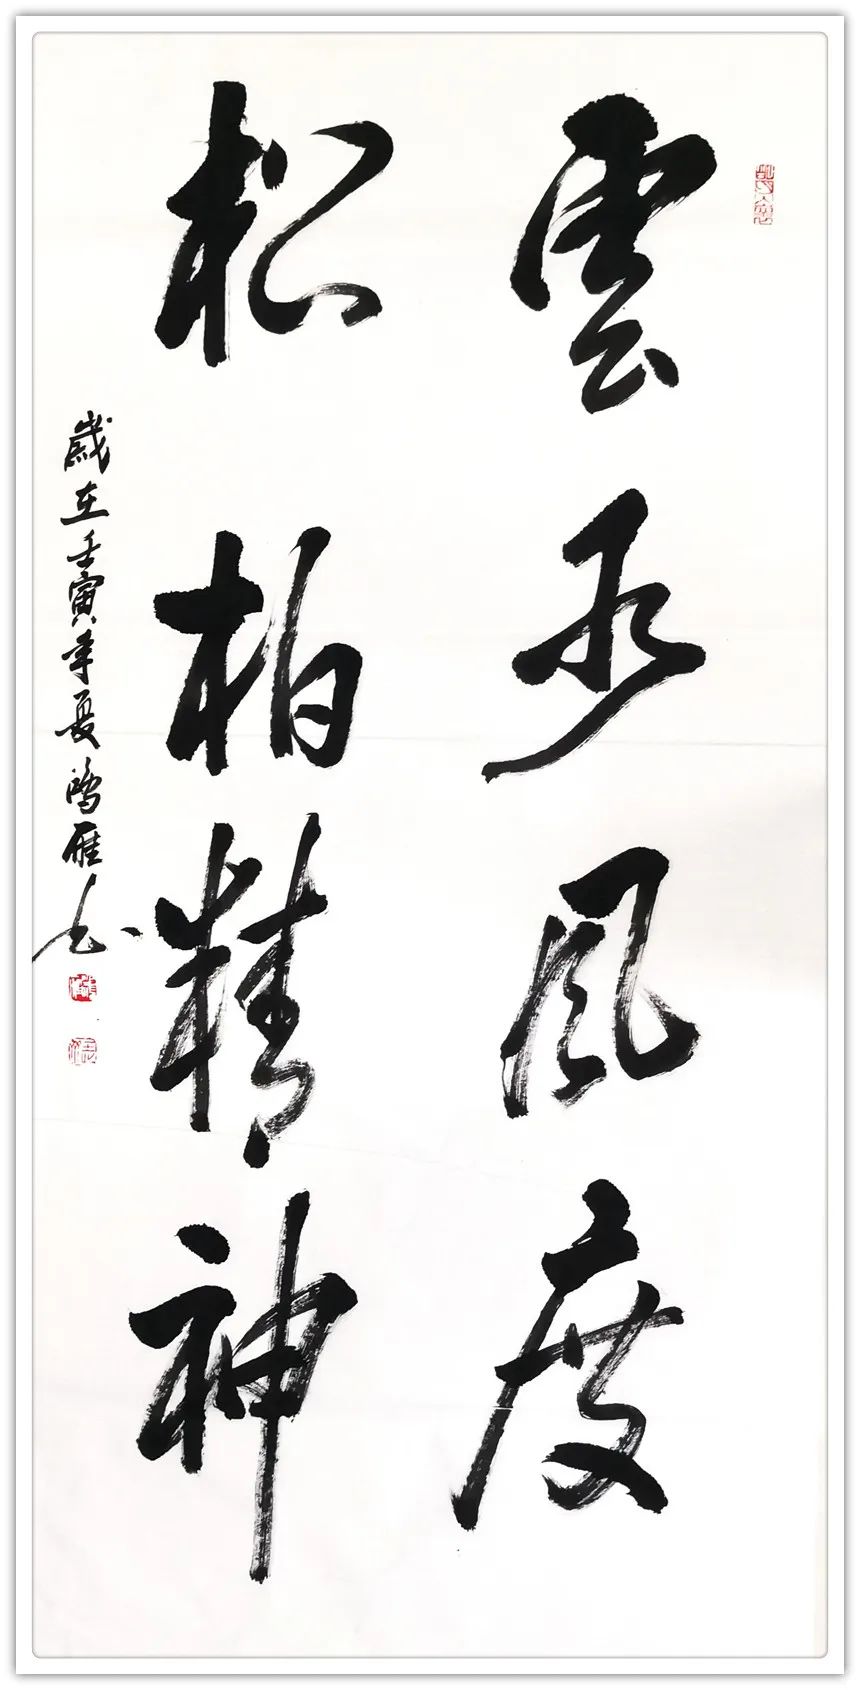 雲水風度
松柏精神
歲在壬寅年夏鴻雁书